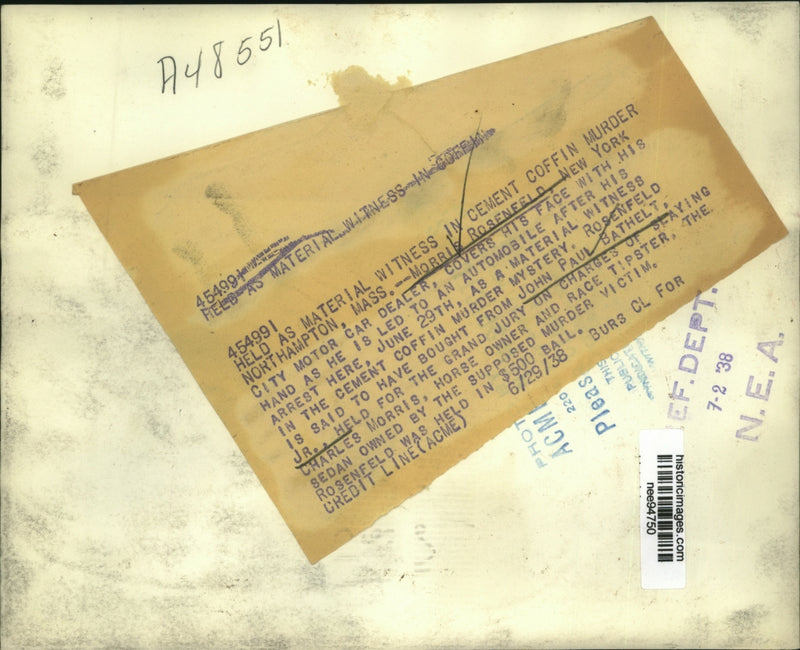 A48551
454991
HELD AS MATERIAL WITNESS IN COFFIN
454991
HELD AS MATERIAL WITNESS IN CEMENT COFFIN MURDER
NORTHAMPTON, MASS.--MORRIS ROSENFELD, NEW YORK
CITY MOTOR CAR DEALER, COVERS HIS FACE WITH HIS
HAND AS HE IS LED TO AN AUTOMOBILE AFTER HIS
ARREST HERE, JUNE 29TH, AS A MATERIAL WITNESS
IN THE CEMENT COFFIN MURDER MYSTERY. ROSENFELD
IS SAID TO HAVE BOUGHT FROM JOHN PAUL BATHELT,
JR., HELD FOR THE GRAND JURY ON CHARGES OF SLAYING
CHARLES MORRIS, HORSE OWNER AND RACE TIPSTER, THE
SEDAN OWNED BY THE SUPPOSED MURDER VICTIM.
ROSENFELD WAS HELD IN $500 BAIL. BURS CL FOR
CREDIT LINE(ACME) 6/29/38
PHOT
ACME
220
Pleas
THIS
PUBLIC
SYNDICAT
EF. DEPT.
7-2 '38
N. E. A.
historicimages.com
nee94750